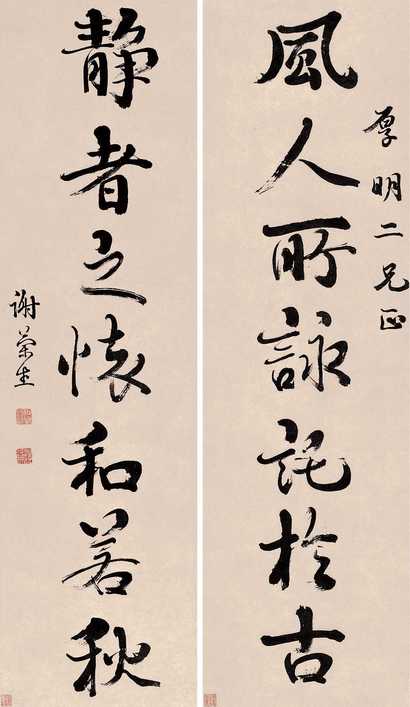 厚明二兄正
風人所詠託於古
静者之懷和若秋
謝蘭生